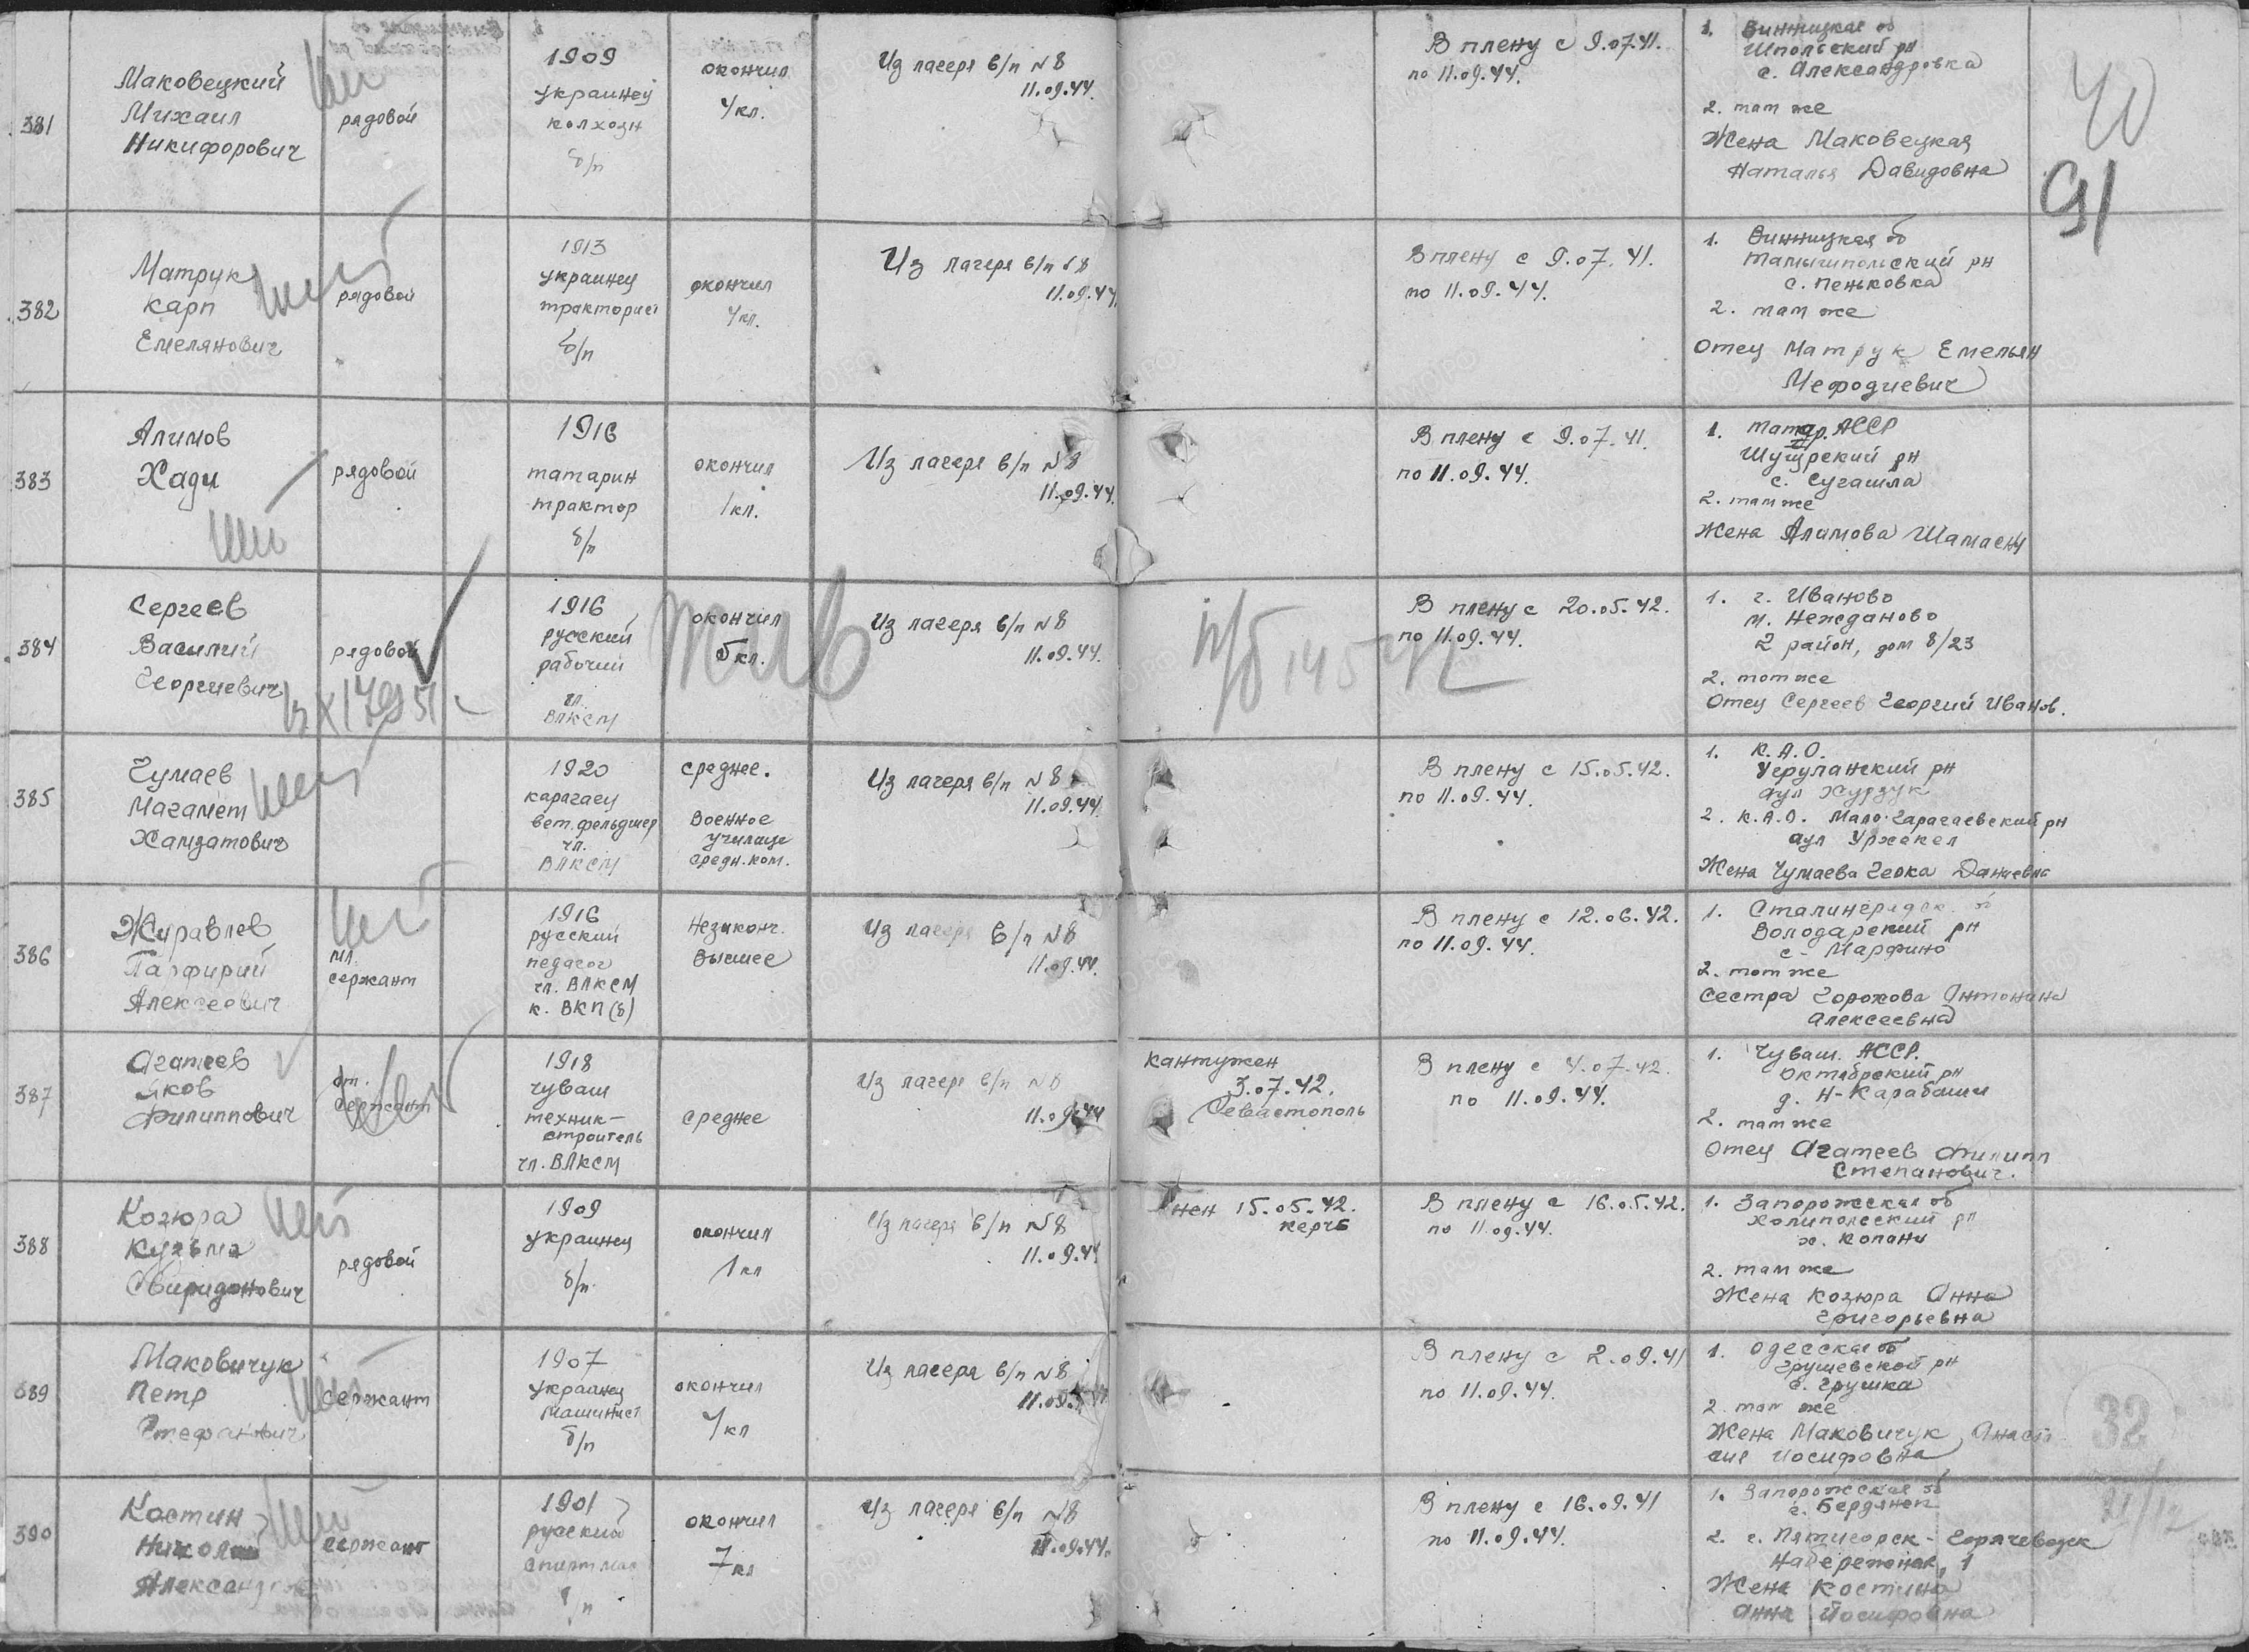 381
Маковецкий
Михаил
Никифорович
рядовой
1909
украинец
колхозн
б/п
окончил
4 кл.
Из лагеря в/п №8
11.09.44.
В плену с 9.07.41.
по 11.09.44.
1. Винницкая об
Шпольский рн
с. Александровка
2. там же
Жена Маковецкая
Наталья Давидовна
40
91
382
Матрук
Карп
Емелянович
рядовой
1913
украинец
тракторист
б/п
окончил
4 кл.
Из лагеря в/п №8
11.09.44
В плену с 9.07.41.
по 11.09.44.
1. Винницкая об
рн
с. Пеньковка
2. там же
Отец Матрук Емельян
Мефодиевич
383
Алимов
Хади
рядовой
1916
татарин
трактор
б/п
окончил
1 кл.
Из лагеря в/п №8
11.09.44.
В плену с 9.07.41.
по 11.09.44.
1. Татар. АССР
рн
с. Сугашла
2. там же
Жена Алимова
384
Сергеев
Василий
Георгиевич
рядовой
1916
русский
рабочий
чл.
ВЛКСМ
окончил
5 кл.
Из лагеря в/п №8
11.09.44.
В плену с 20.05.42.
по 11.09.44.
1. г. Иваново
м. Нежданово
2 район, дом 8/23
2. тот же
Отец Сергеев Георгий Иванов.
385
Чумаев
Магамет
Хамзатович
1920
карагаец
вет. фельдшер
чл.
ВЛКСМ
среднее.
Военное
училище
средн. ком.
Из лагеря в/п №8
11.09.44.
В плену с 15.05.42.
по 11.09.44.
1. К.А.О.
рн
аул Хурзук
2. К.А.О. Мало-Карагаевский рн
аул
Жена Чумаева
386
Журавлев
Парфирий
Алексеевич
мл.
сержант
1916
русский
педагог
чл. ВЛКСМ
к. ВКП(б)
Незаконч.
высшее
Из лагеря в/п №8
11.09.44.
В плену с 12.06.42.
по 11.09.44.
1. Сталинградск. об
Володарский рн
с. Марфино
2. тот же
Сестра Горохова Антонина
Алексеевна
387
Агатеев
Яков
Филиппович
ст.
сержант
1918
чуваш
техник-
строитель
чл. ВЛКСМ
среднее
Из лагеря в/п №8
11.09.44
Кантужен
3.07.42.
Севастополь
В плену с 4.07.42.
по 11.09.44.
1. Чуваш. АССР.
Октябрский рн
д. Н-Карабаши
2. там же
Отец Агатеев Филипп
Степанович.
388
Козюра
Кузьма
Свиридонович
рядовой
1909
украинец
б/п
окончил
1 кл
Из лагеря в/п №8
11.09.44
15.05.42.
Керчь
В плену с 16.05.42.
по 11.09.44.
1. Запорожская об
рн
х. Копани
2. там же
Жена Козюра Анна
Григорьевна
389
Маковичук
Петр
Стефанович
сержант
1907
украинец
машинист
б/п
окончил
4 кл
Из лагеря в/п №8
В плену с 2.09.41
по 11.09.44.
1. Одесская об
Грушевской рн
с. Грушка
2. там же
Жена Маковичук Анаста
сия Иосифовна
32
390
Костин
Николай
сержант
1901
русский
б/п
окончил
7 кл
Из лагеря в/п №8
11.09.44.
В плену с 16.09.41
по 11.09.44.
1. Запорожская об
г. Бердянск
2. г. Пятигорск - Горячеводск
Набережная, 1
Жена Костина
Анна Иосифовна